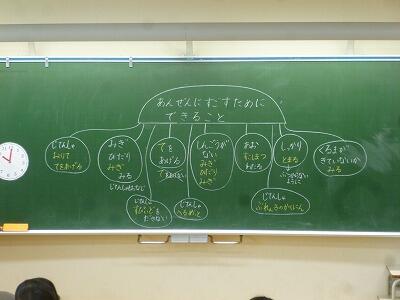 あんぜんにすごすために
できること
じてんしゃ
おりて
てをあげる
みぎ
ひだり
みぎ
みる
じてんしゃもおなじ
てを
あげる
しんごうが
ない
みぎ
ひだり
みぎ
あお
すこしまつ
わたる
しっかり
とまる
ぶつからない
ように
くるまが
きていないか
みる
じてんしゃ
すぴーどを
ださない
じてんしゃ
へるめっと
じてんしゃ
ぶれーきのかくにん